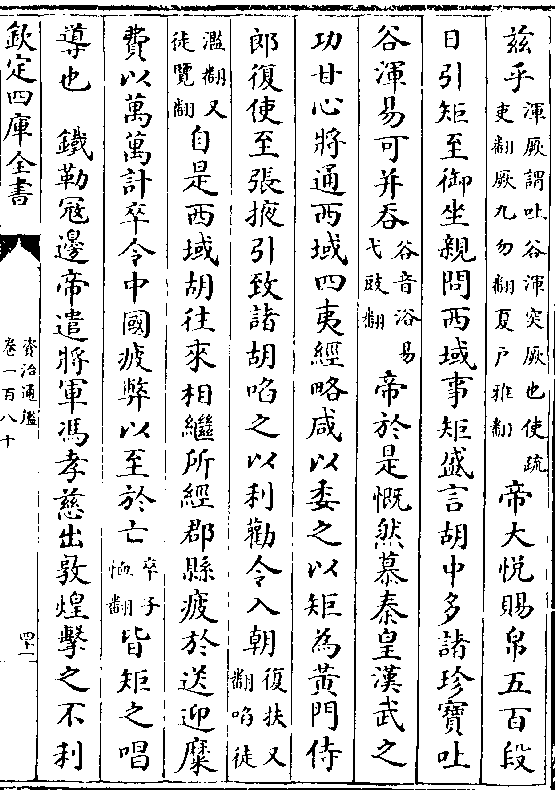 茲乎渾厥謂吐谷渾突厥也使疏吏翻厥九勿翻夏戶雅翻帝大悅賜帛五百段
日引矩至御坐親問西域事矩盛言胡中多諸珍寶吐
谷渾易可并吞谷音浴易弋豉翻帝於是慨然慕秦皇漢武之
功甘心將通西域四夷經略咸以委之以矩為黃門侍
郎復使至張掖引致諸胡啗之以利勸令入朝復扶又翻啗徒
濫翻又徒覽翻自是西域胡往來相繼所經郡縣疲於送迎糜
費以萬萬計卒令中國疲弊以至於亡卒子恤翻皆矩之唱
導也 鐵勒寇邊帝遣將軍馮孝慈出敦煌擊之不利
欽定四庫全書
資治通鑑
卷一百八十
四十一